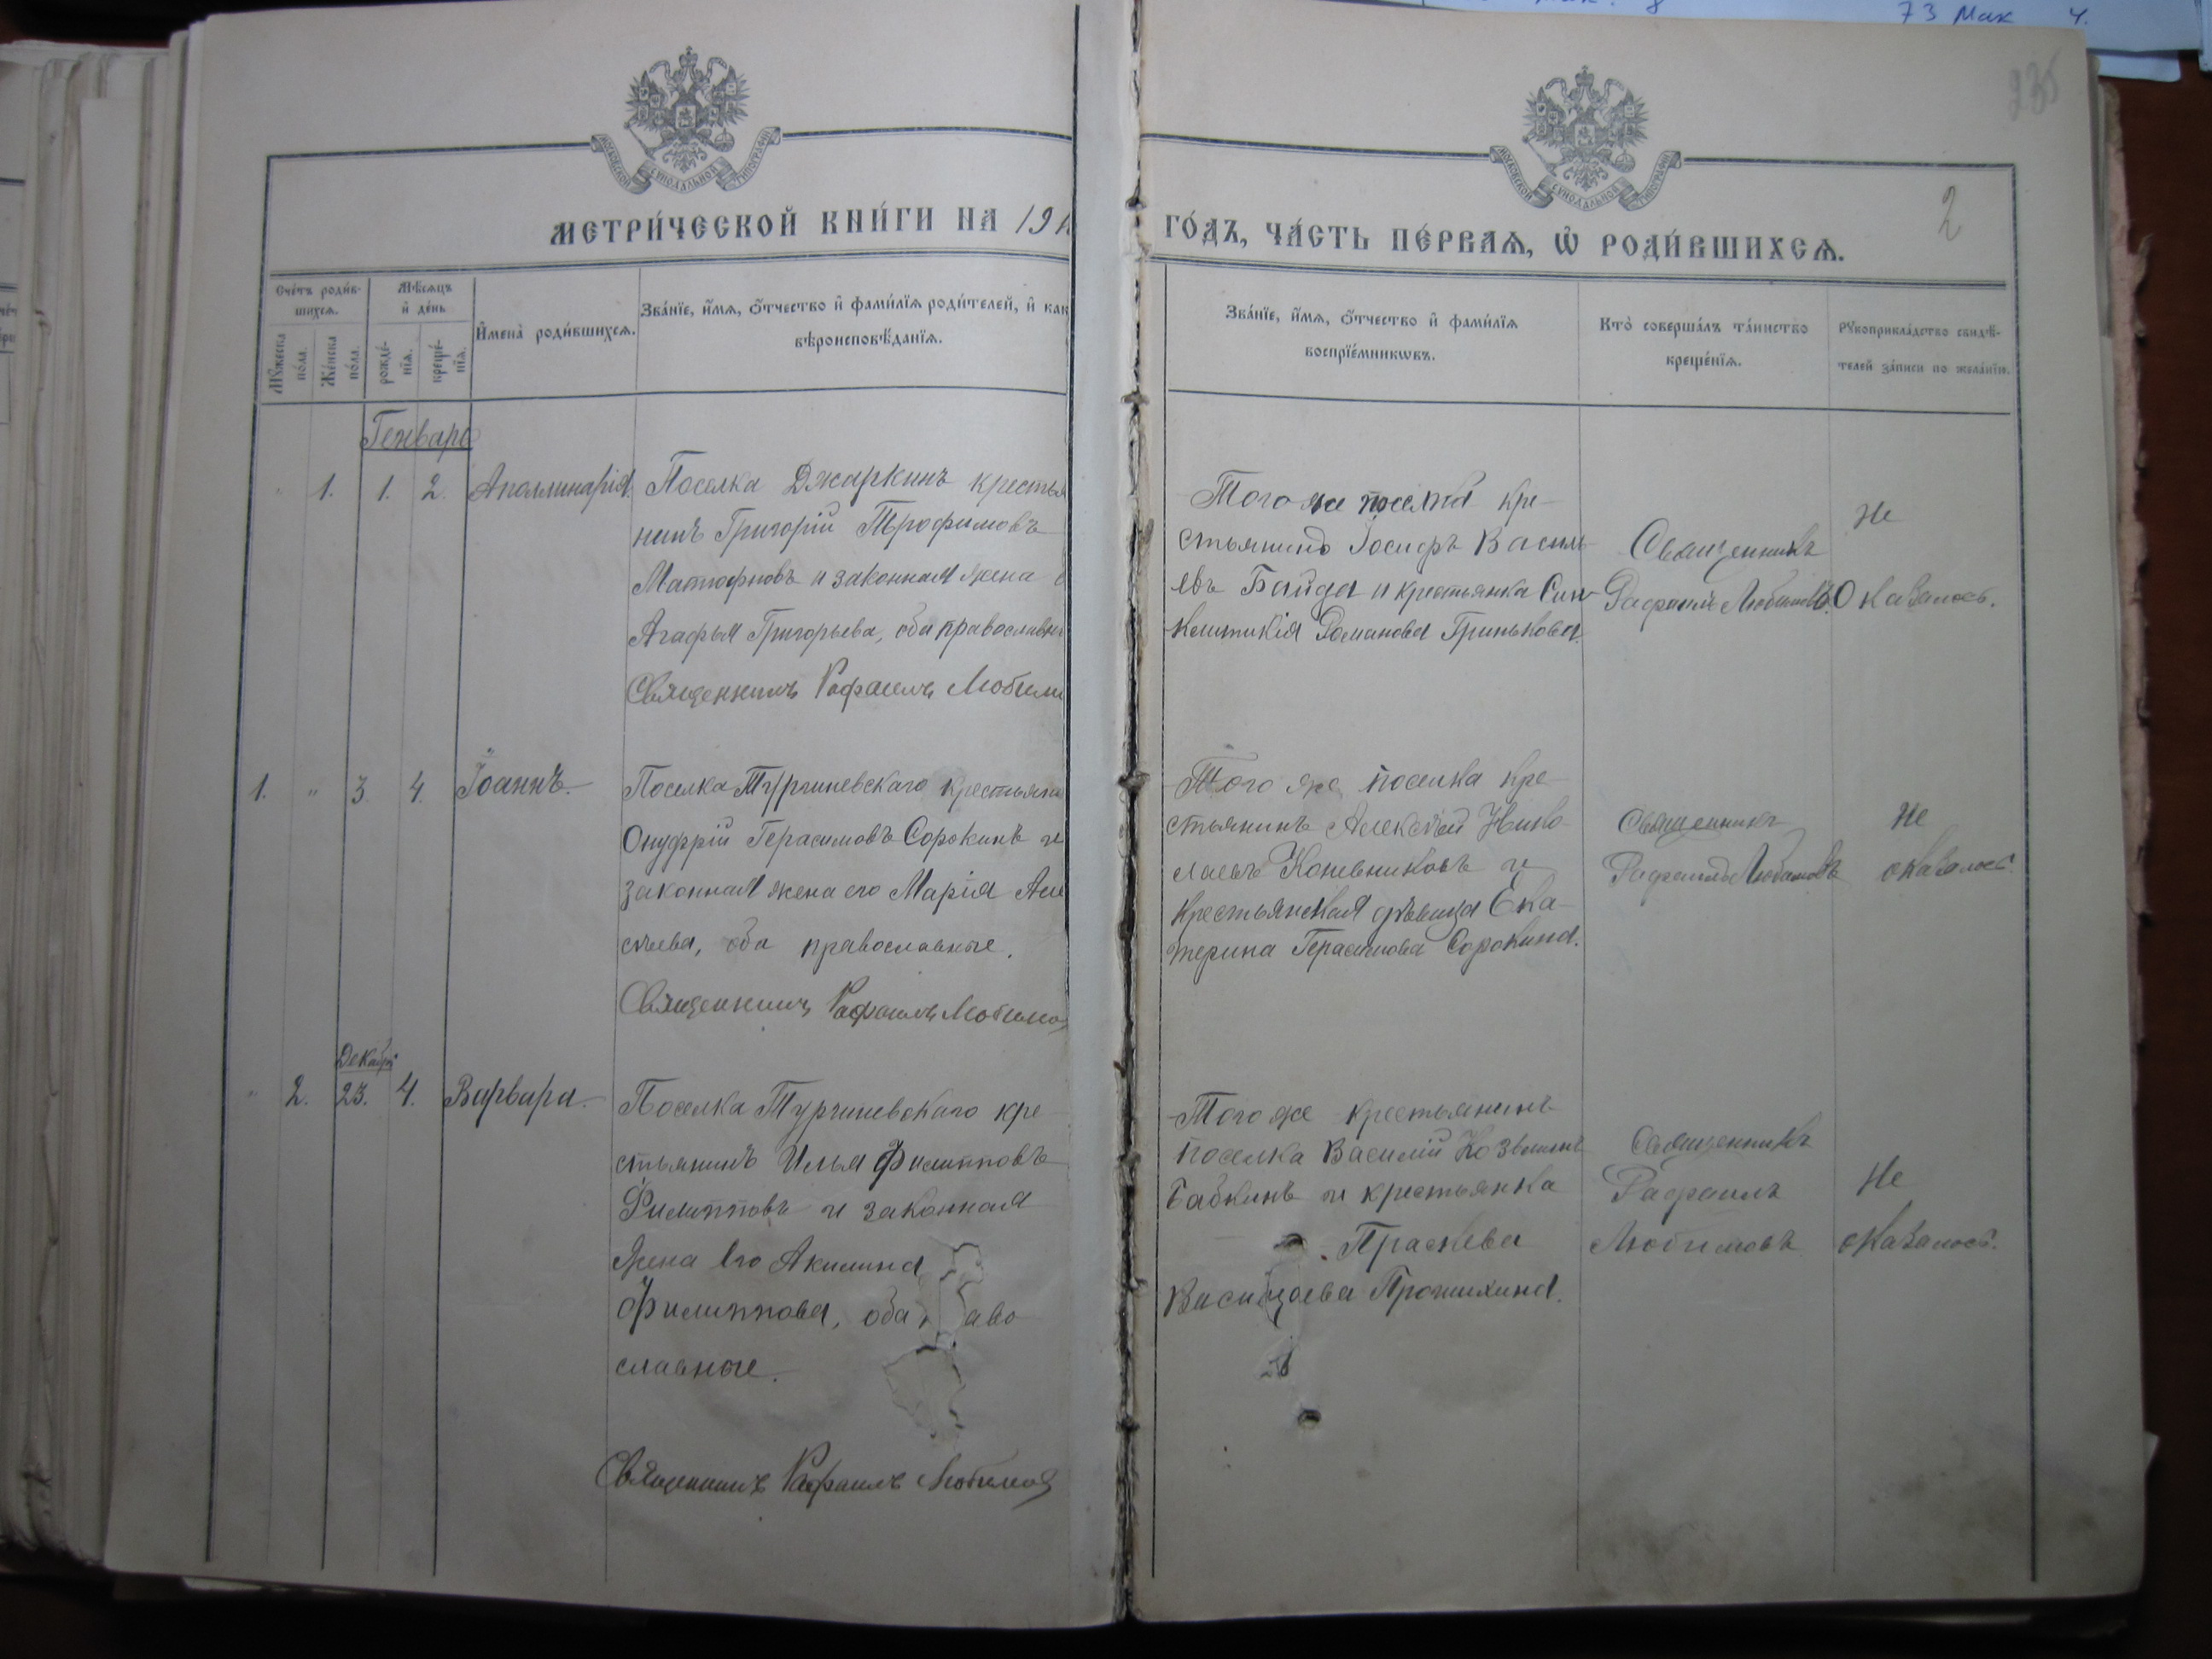 73 Мак 4.
235
2
МОСКОВСКОЙ СѴНОДАЛЬНОЙ ТИПОГРАФІИ
МОСКОВСКОЙ СѴНОДАЛЬНОЙ ТИПОГРАФІИ
МЕТРИ́ЧЕСКОЙ КНИ́ГИ НА 19
ГО́ДЪ, ЧА́СТЬ ПЕ́РВАѦ, Ѡ҆ РОДИ́ВШИХСѦ.
Сче́тъ роди́в-
шихсѧ.
Мꙋ́жеска по́ла.
Же́нска по́ла.
Мѣ́сѧцъ
и҆ де́нь
рожде́-
нїѧ.
креще́-
нїѧ.
И҆мена̀ роди́вшихсѧ.
Зва́нїе, и҆́мѧ, ѻ҆́тчество и҆ фами́лїѧ роди́телей, и҆ как
вѣроисповѣ́данїѧ.
Зва́нїе, и҆́мѧ, ѻ҆́тчество и҆ фами́лїѧ
воспрїе́мникѡвъ.
Кто̀ соверша́лъ та́инство
креще́нїѧ.
Рꙋкоприкла́дство свидѣ́-
телей за́писи по жела́нїю.
Генварь
" 1. 1. 2. Аполлинарія.
Поселка Джаркинъ крестья
нинъ Григорій Трофимовъ
и законная жена
Агафья Григорьева, оба православн
Священникъ Рафаилъ Любим
Того же поселка кре-
стьянинъ Іосифъ Василь
евъ Байда и крестьянка Син-
клитикія Романова Гринькова.
Священникъ
Рафаилъ Любимовъ.
Не
оказалось.
1. " 3 4. Іоаннъ.
Поселка Тургиневскаго крестьяни
Онуфрій Герасимовъ Сорокинъ и
законная жена его Марія Але
ева, оба православные.
Священникъ Рафаилъ Любимов
Того же поселка кре-
стьянинъ Алексѣй Нико-
лаевъ Коневниковъ и
крестьянская дѣвица Ека-
терина Герасимова Сорокина.
Священникъ
Рафаилъ Любимовъ
Не
оказалось.
Декабрь
" 2. 23. 4. Варвара.
Поселка Тургиневскаго кре
стьянинъ Илья Филипповъ
Филипповъ и законная
жена его Акилина
Филиппова, оба аво
славные.
Священникъ Рафаилъ Любимов
Того же крестьянинъ
поселка Василій Козьминъ
Бабкинъ и крестьянка
Праскева
Васильева Прошихина.
Священникъ
Рафаилъ
Любимовъ
Не
оказалось.